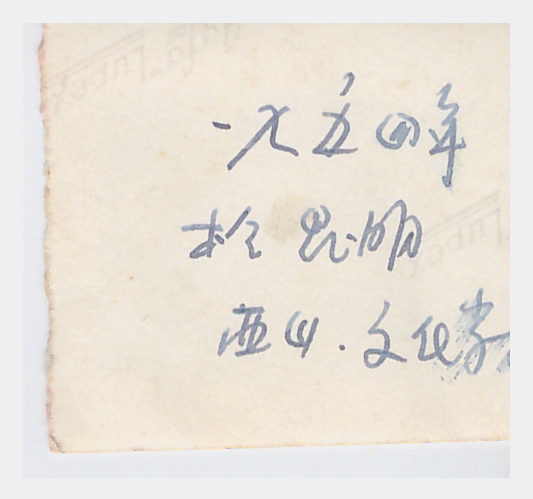 一九五四年
於昆明
西山.文化